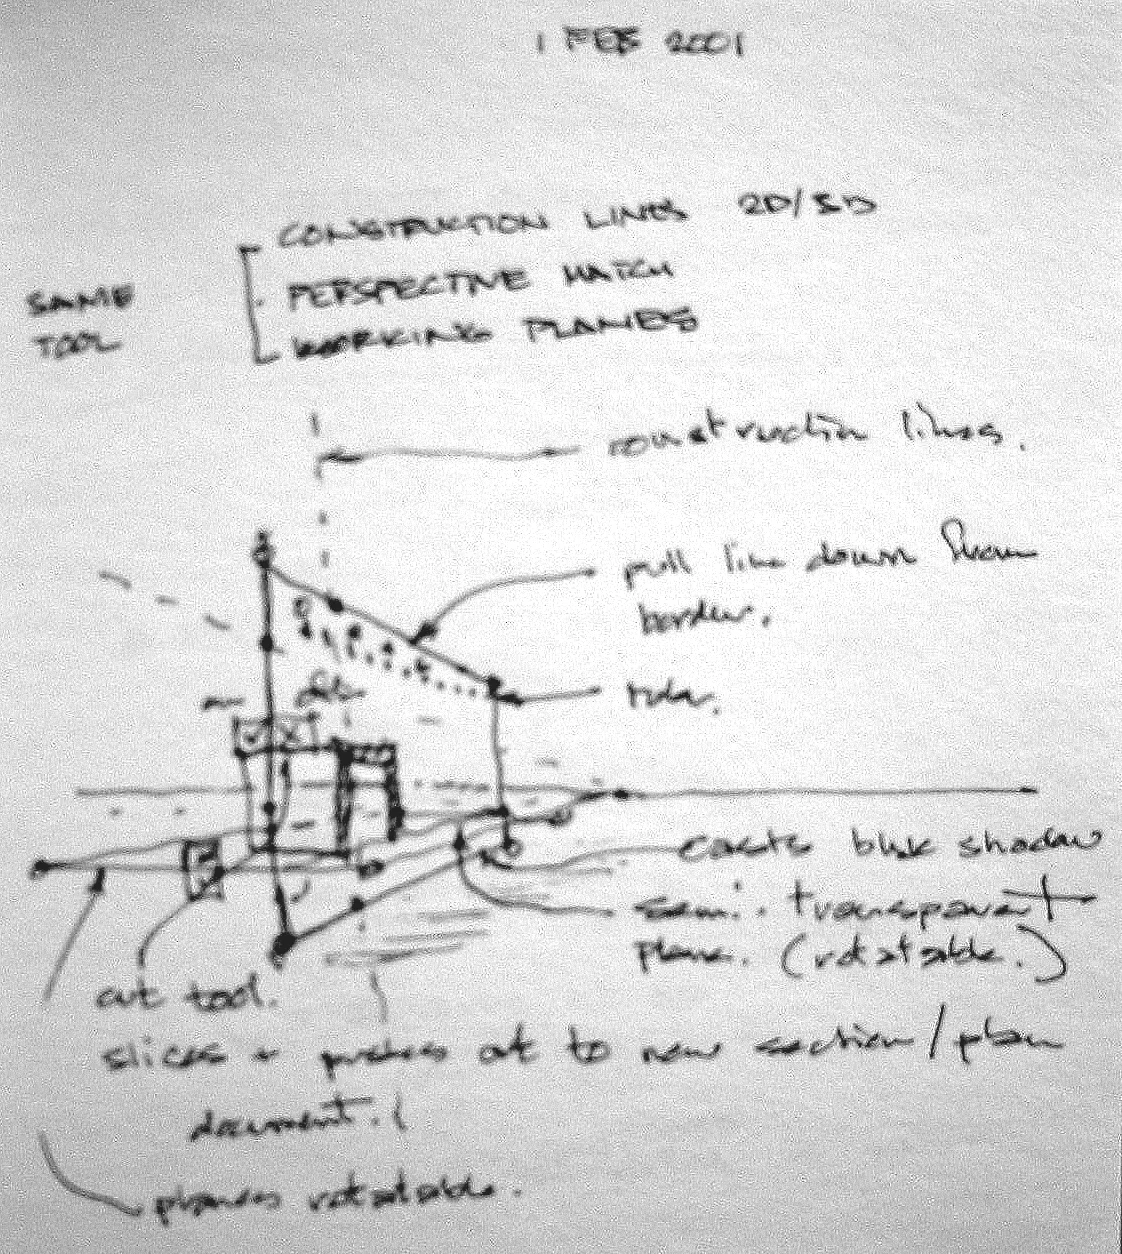 1 FEB 2001
CONSTRUCTION LINES 2D/3D
PERSPECTIVE MATCH
WORKING PLANES
SAME
TOOL
construction lines.
pull line down from
border.
ruler.
casts blk shadow
semi. transparent
plane. (rotatable.)
cut tool.
slices + pushes out to new section/plan
document.
planes rotatable.